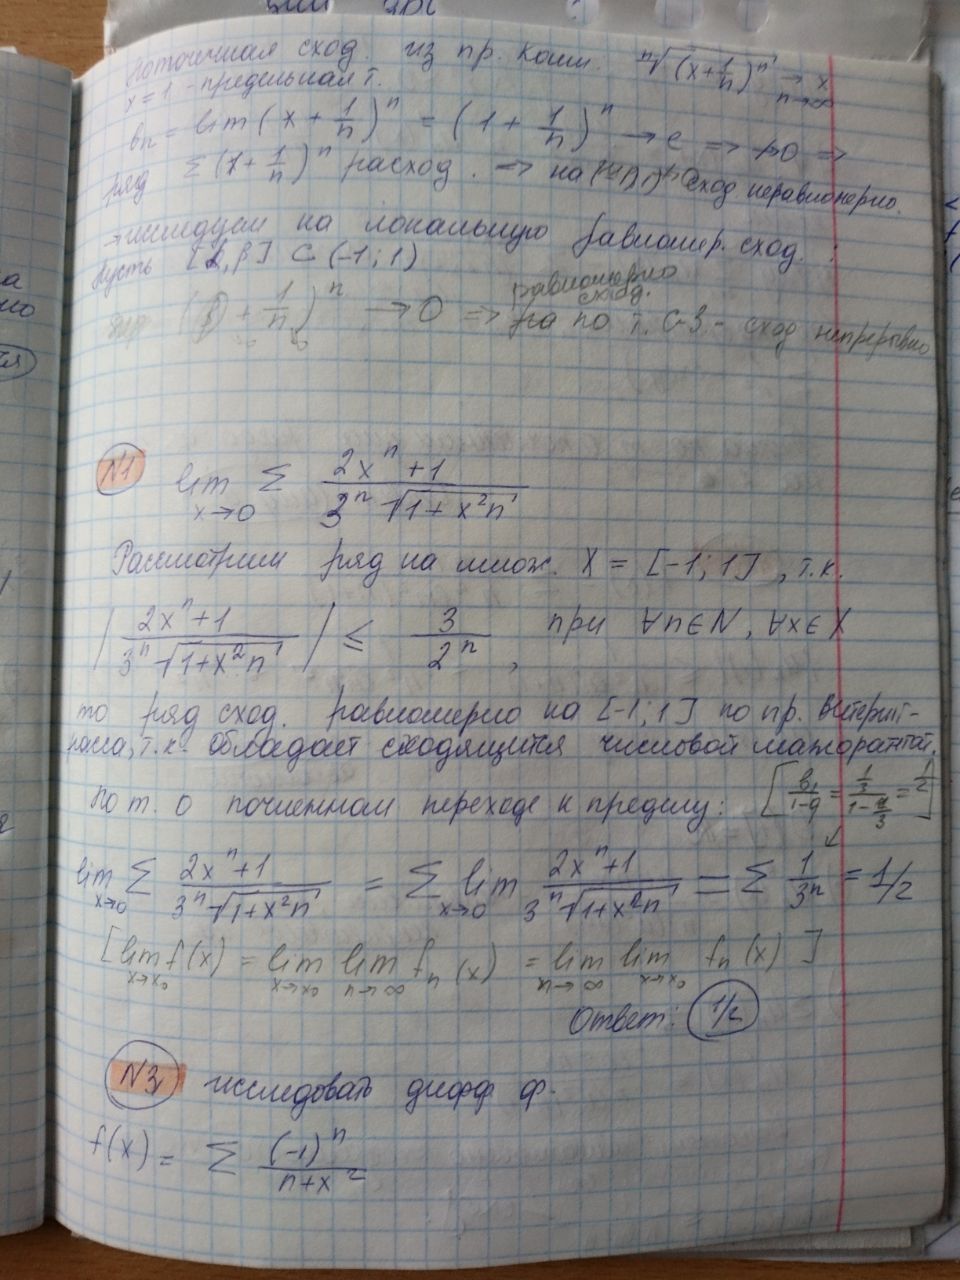 Поточечная сход. из пр. Коши: ⁿ√(x+1/n)ⁿ → x
n→∞
x=1 - предельная т.
bₙ = lim (x + 1/n)ⁿ = (1 + 1/n)ⁿ → e => ↛0 =>
ряд Σ(1+1/n)ⁿ расход. => на сход неравномерно.
→ исследуем на локальную равномер. сход. :
Пусть [α, β] ⊂ (-1; 1)
( + 1/n)ⁿ → 0 => равномерно сход.
по т. С-З - сход непрерывно
N1 lim x→0 Σ (2xⁿ+1)/(3ⁿ √(1+x²n))
Рассмотрим ряд на множ. X = [-1; 1], т.к.
|(2xⁿ+1)/(3ⁿ √(1+x²n))| ≤ 3/2ⁿ, при ∀n∈N, ∀x∈X
то ряд сход. равномерно на [-1; 1] по пр. Вейершт-
расса, т.к. обладает сходящится числовой мажорантой.
По т. о почленном переходе к пределу: [b₁/(1-q) = (1/3)/(1-1/3) = 1/2]
lim x→0 Σ (2xⁿ+1)/(3ⁿ√(1+x²n)) = Σ lim x→0 (2xⁿ+1)/(3ⁿ√(1+x²n)) = Σ 1/3ⁿ = 1/2
[lim x→x₀ f(x) = lim x→x₀ lim n→∞ fₙ(x) = lim n→∞ lim x→x₀ fₙ(x)]
Ответ: 1/2
N3 исследовать дифф ф.
f(x) = Σ (-1)ⁿ/(n+x²)